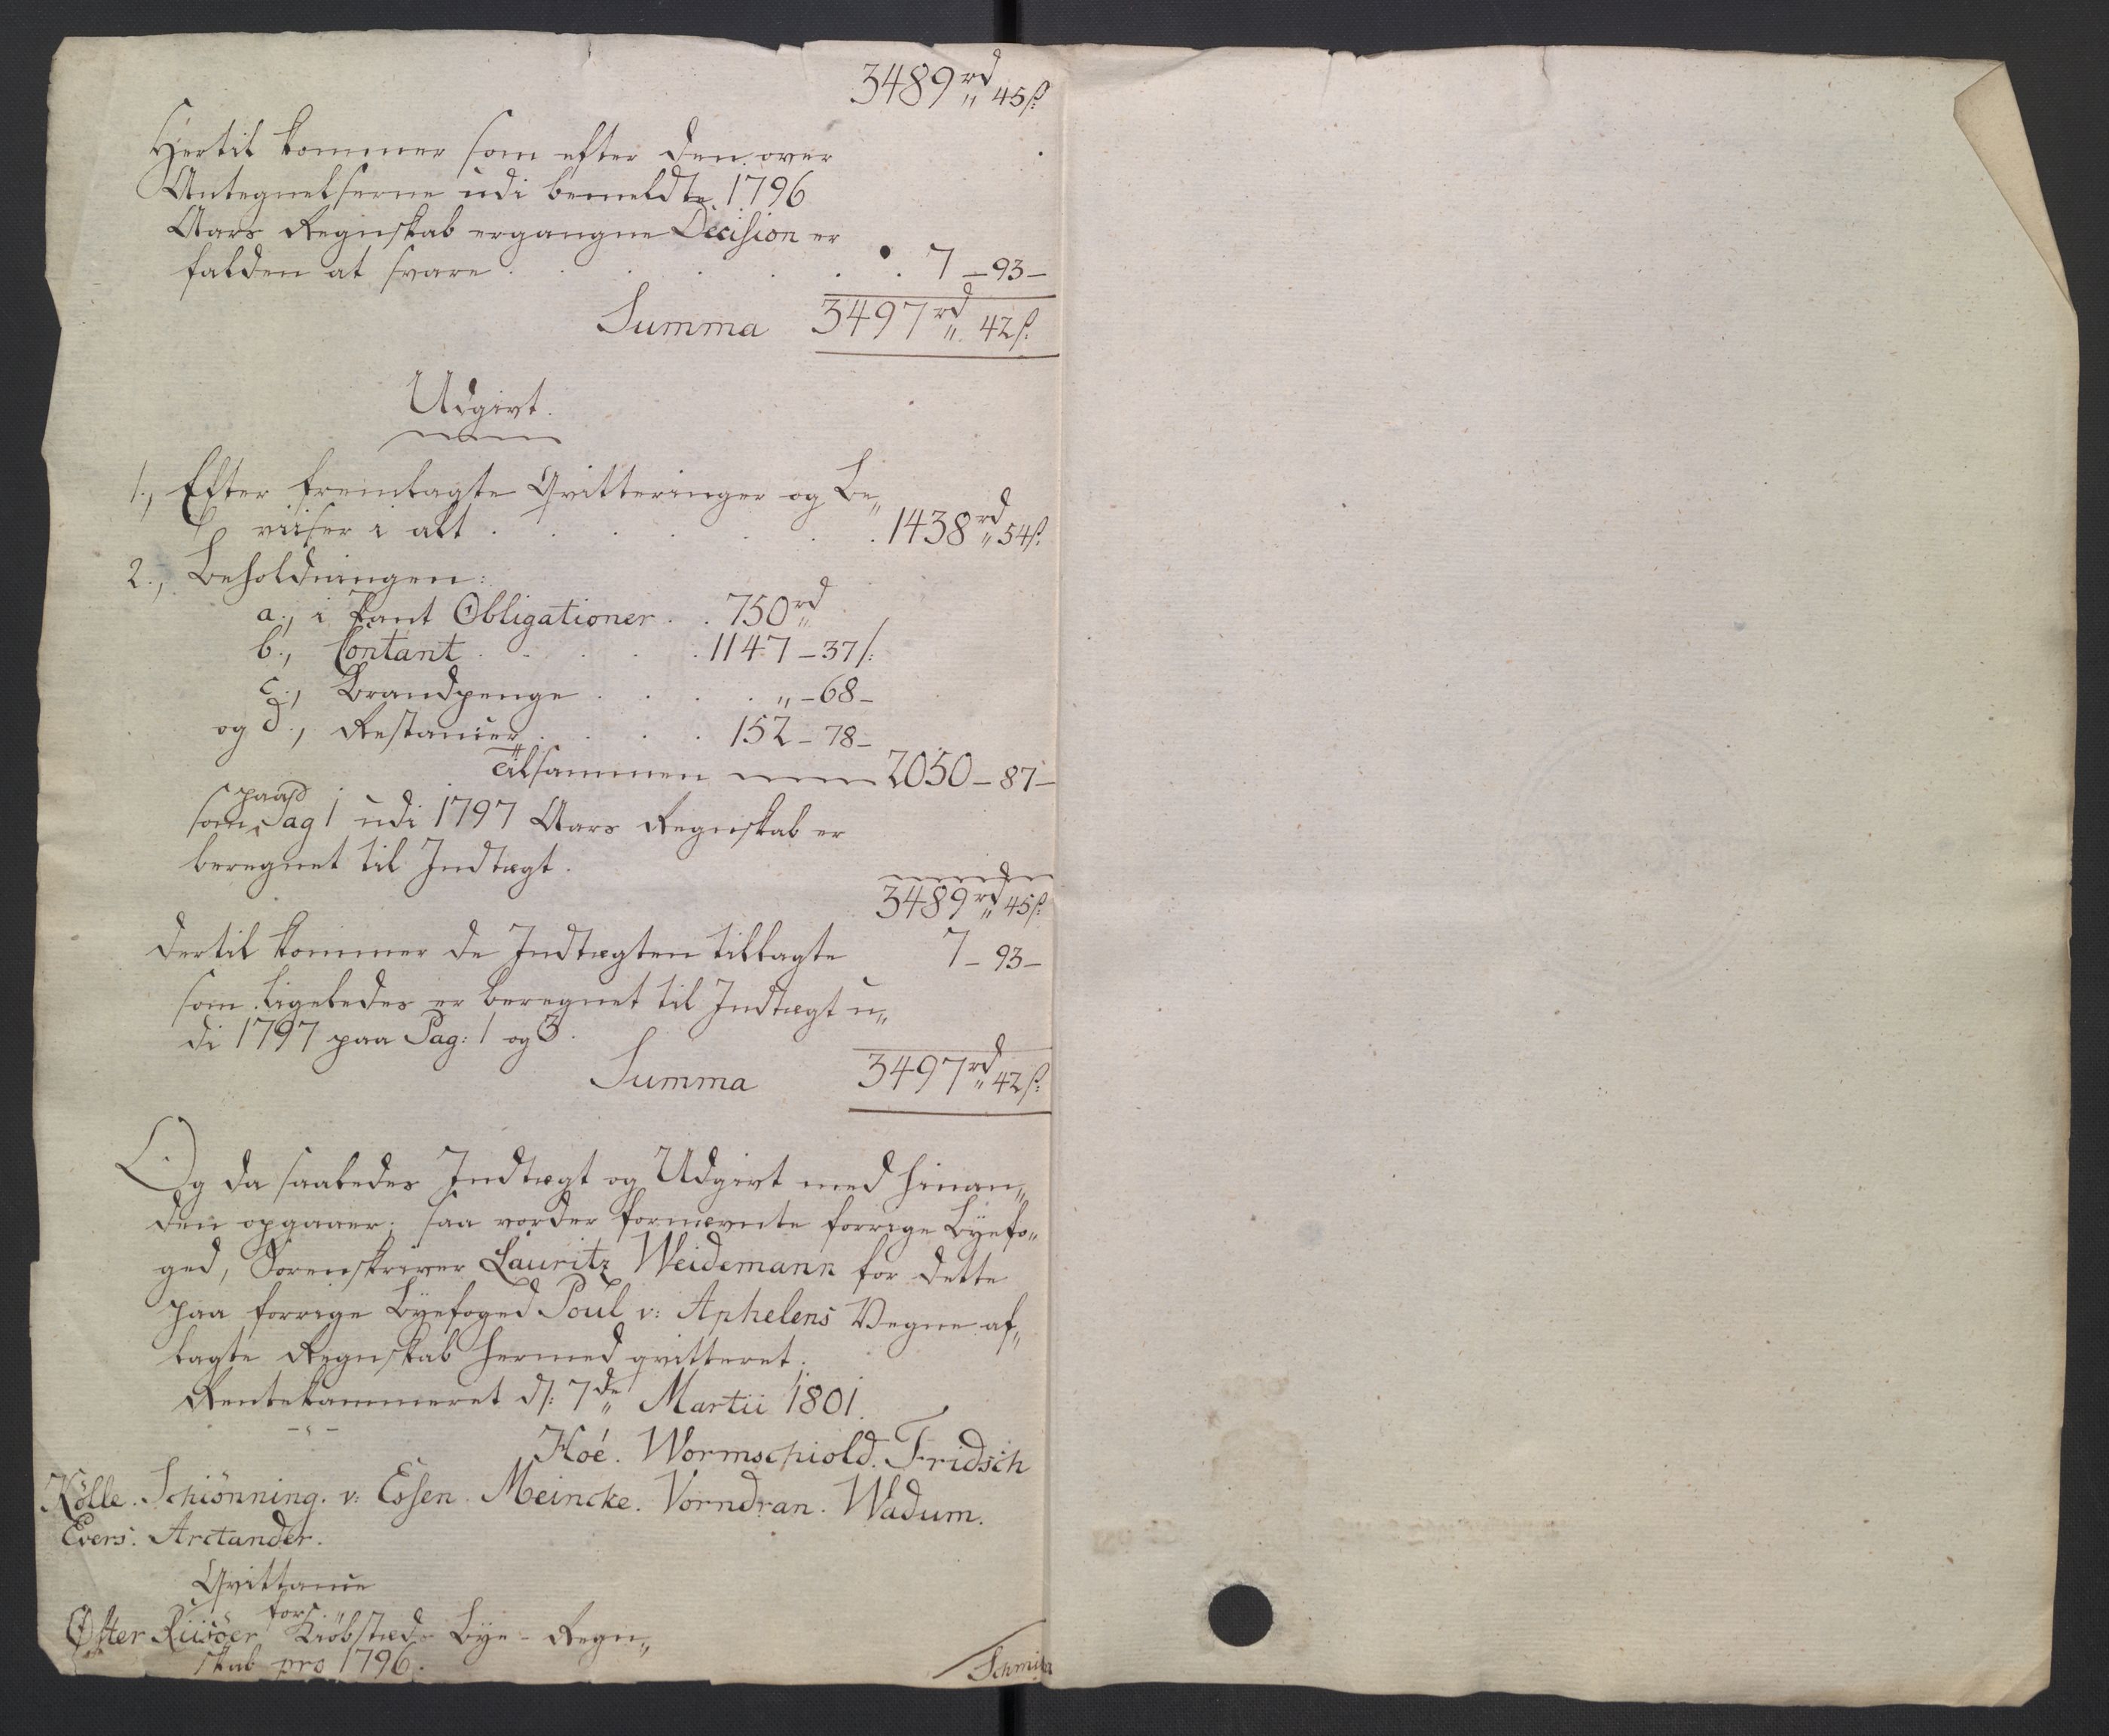 3489 rd „ 45 ß:
Hertil kommer som efter den over
Antegnelserne udi bemeldte 1796
Aars Regnskab ergangne Decision er
falden at svare . . . . . . . 7 – 93 –
Summa 3497 rd „ 42 ß:
Udgivt.
1., Efter fremlagte Qvitteringer og Be„
viiser i alt . . . . . . 1438 rd „ 54 ß:
2., Beholdningen:
a., i Pant Obligationer . . 750 rd „
b., Contant . . . . . 1147 – 37 ß:
c., Brandpenge . . . . „ – 68 –
og d., Restancer . . . . 152 – 78 –
Tilsammen 2050 – 87 –
som paa Pag 1 udi 1797 Aars Regnskab er
beregnet til Indtægt.
3489 rd „ 45 ß:
Dertil kommer de Indtægten tillagte 7 – 93 –
som ligeledes er beregnet til Indtægt u„
di 1797 paa Pag: 1 og 3.
Summa 3497 rd „ 42 ß:
Og da saaledes Indtægt og Udgivt med hinan„
den opgaaer; saa vorder fornævnte forrige Byefo„
ged, Sorenskriver Lauritz Weidemann for dette
paa forrige Byefoged Poul v: Aphelens Vegne af„
lagte Regnskab hermed qvitteret.
Rentekammeret d: 7de Martii 1801.
Hoé. Wormschiold. Fridsch
Kölle. Schiönning. v: Essen. Meincke. Vorndran. Wadum.
Evers. Arctander.
Qvittance
for
Øster Riisöer Kiöbstæds Bye-Regn„
skab pro 1796.